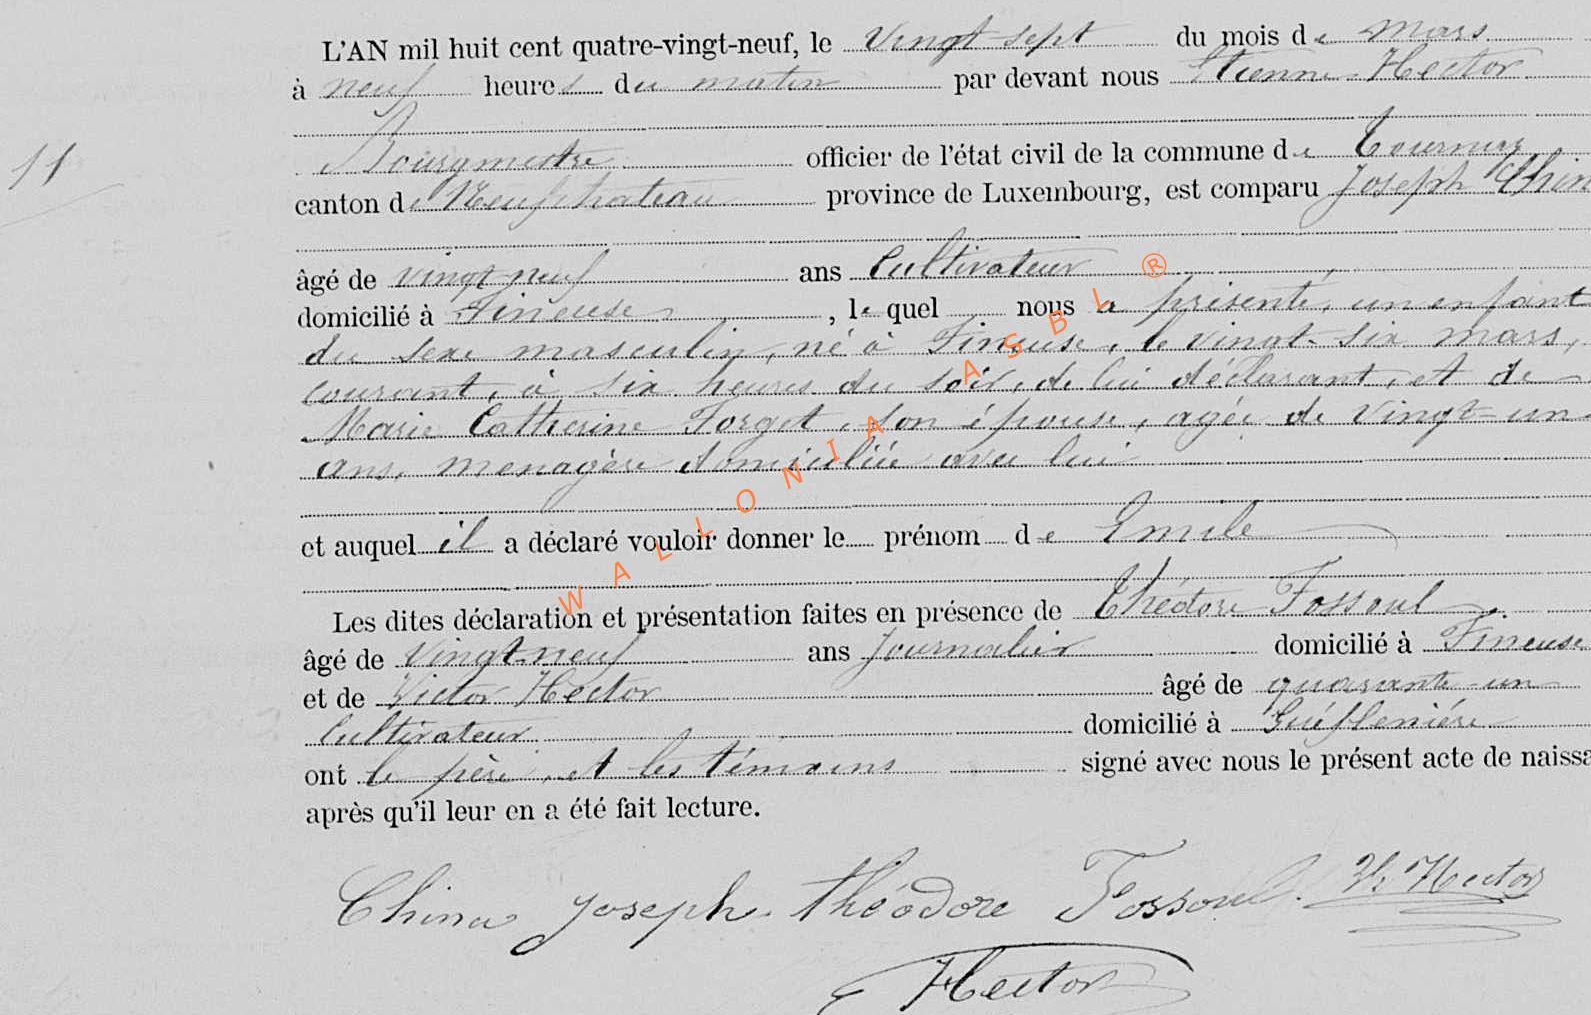 L'AN mil huit cent quatre-vingt-neuf, le vingt sept du mois de mars
à neuf heures du matin par devant nous Etienne Hector
Bourgmestre officier de l'état civil de la commune de Tournay
11
canton de Neufchateau province de Luxembourg, est comparu Joseph Chin
âgé de vingt neuf ans Cultivateur
domicilié à Fineuse, lequel nous a présenté, un enfant
du sexe masculin, né à Fineuse, le vingt-six mars,
courant, à six heures du soir, de lui déclarant, et de
Marie Catherine Forget, son épouse, agée de vingt-un
ans, menagère domiciliée avec lui
et auquel il a déclaré vouloir donner le prénom de Emile
Les dites déclaration et présentation faites en présence de Théodore Fossoul
âgé de vingt neuf ans Journalier domicilié à Fineuse
et de Victor Hector âgé de quarante-un
Cultivateur domicilié à
ont le père, et les témoins signé avec nous le présent acte de naissa
après qu'il leur en a été fait lecture.
China Joseph. Théodore Fossoul. V. Hector
Hector
WALLONIA ASBL ®